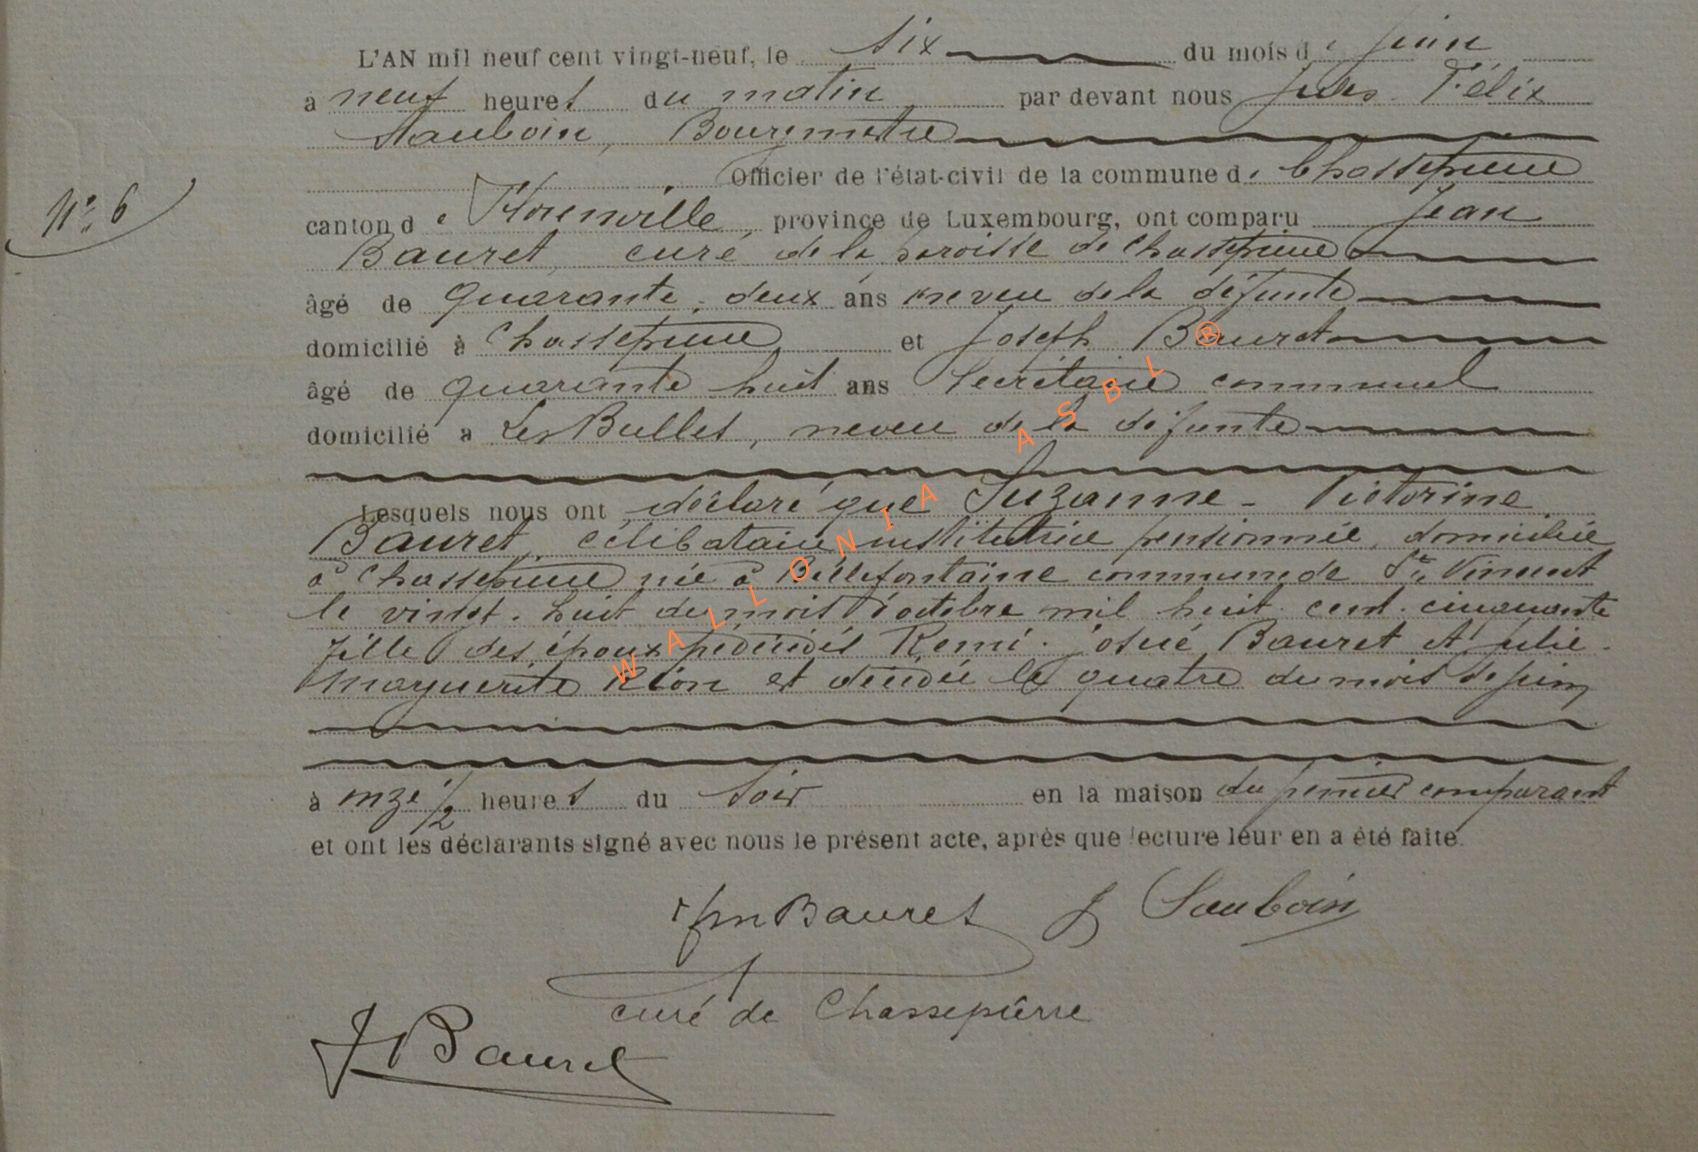 L'AN mil neuf cent vingt-neuf, le six du mois de juin
à neuf heures du matin par devant nous Jules Félix
Sauboin, Bourgmestre
Officier de l'état-civil de la commune de Chassepierre
N° 6
canton de Florenville, province de Luxembourg, ont comparu Jean
Bauret, curé de la paroisse de Chassepierre
âgé de quarante-deux ans neveu de la défunte
domicilié à Chassepierre et Joseph Bauret
âgé de quarante huit ans secrétaire communal
domicilié à Les Bulles, neveu de la défunte
Lesquels nous ont déclaré que Suzanne-Victorine
Bauret, célibataire institutrice pensionnée, domiciliée
à Chassepierre née à Bellefontaine commune de St Vincent
le vingt-huit du mois d'octobre mil huit cent cinquante
fille des époux prédécédés Remi-Josué Bauret et Julie-
Marguerite Rion est décédée le quatre du mois de juin
à onze 1/2 heures du soir en la maison du premier comparant
et ont les déclarants signé avec nous le présent acte, après que lecture leur en a été faite.
Bauret J Sauboin
curé de Chassepierre
J Bauret
WALLONIA ASBL ®